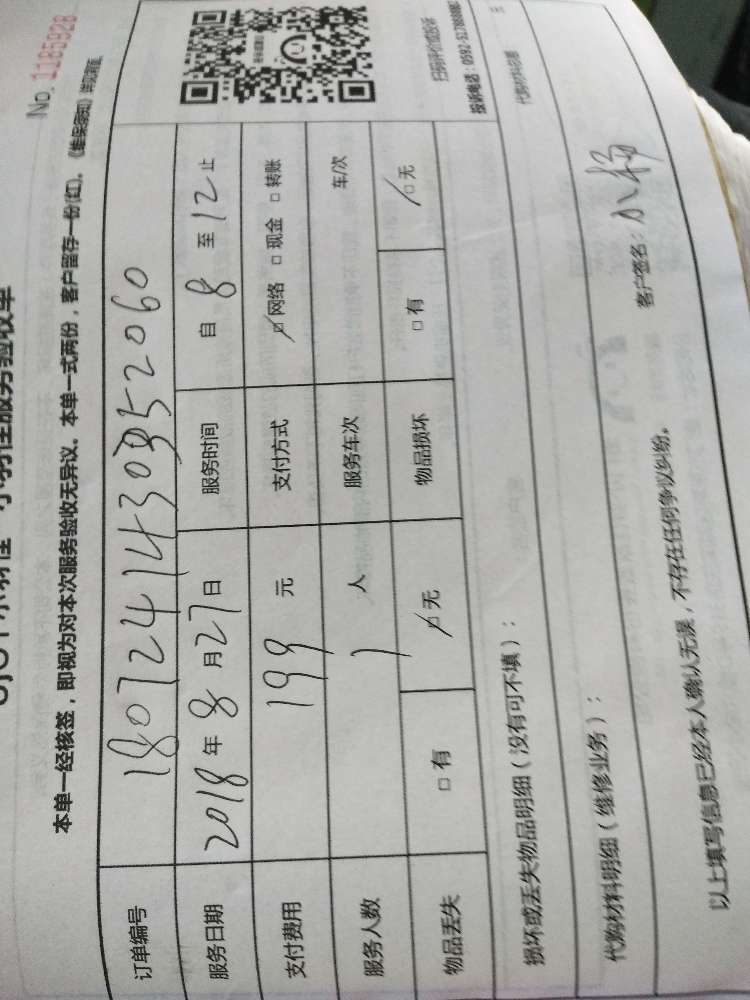 小羽佳服务验收单
No. 1185928
本单一经核签，即视为对本次服务验收无异议。本单一式两份，客户留存一份(红)。
订单编号 18072414309352060
服务日期 2018 年 8 月 27 日 服务时间 自 8 至 12 止
支付费用 199 元 支付方式 ☑ 网络 □ 现金 □ 转账
服务人数 1 人 服务车次 车/次
物品丢失 □ 有 ☑ 无 物品损坏 □ 有 ☑ 无
损坏或丢失物品明细（没有可不填）：
扫码评价或投诉
代购材料明细（维修业务）：
以上填写信息已经本人确认无误，不存在任何争议纠纷。
客户签名：小杨